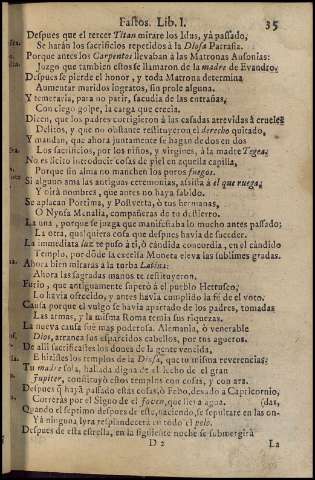 Fastos. Lib. I. 35
Despues que el tercer Titan mirare los Idus, yà passado,
Se harán los sacrificios repetidos à la Diosa Parrasia.
Porque antes los Carpentos llevaban à las Matronas Ausonias:
Juzgo que tambien estos se llamaron de la madre de Evandro.
Despues se pierde el honor, y toda Matrona determina
Aumentar maridos ingratos, sin prole alguna.
Y temeraria, para no parir, sacudia de las entrañas,
Con ciego golpe, la carga que crecia.
Dicen, que los padres corrigieron à las casadas atrevidas à crueles
Delitos, y que no obstante restituyeron el derecho quitado,
Y mandan, que ahora juntamente se hagan de dos en dos
Los sacrificios, por los niños, y virgines, à la madre Tegea.
No es licito introducir cosas de piel en aquella capilla,
Porque sin alma no manchen los puros fuegos.
Si alguno ama las antiguas ceremonias, assista à el que ruega,
Y oirà nombres, que antes no haya sabido.
Se aplacan Porrima, y Postverta, ò tus hermanas,
O Nynfa Menalia, compañeras de tu destierro.
La una, porque se juzga que manifestaba lo mucho antes passado;
La otra, qualquiera cosa que despues havia de suceder.
La immediata luz te puso à ti, ò candida concordia, en el candido
Templo, por dòde la excelsa Moneta eleva las sublimes gradas.
Ahora bien miraràs à la torba Latina:
Ahora las sagradas manos te restituyeron.
Furio, que antiguamente superò à el pueblo Hetrusco,
Lo havia ofrecido, y antes havia cumplido la fé de el voto.
Causa porque el vulgo se havia apartado de los padres, tomadas
Las armas, y la misma Roma temia sus riquezas.
La nueva causa fué mas poderosa. Alemania, ò venerable
Dios, arranca los esparcidos cabellos, por tus agueros.
De alli sacrificastes los dones de la gente vencida,
E hizistes los templos de la Diosa, que tu misma reverencias:
Tu madre sola, hallada digna de el lecho de el gran
Jupiter, constituyò estos templos con cosas, y con ara.
Despues q̃ haya passado estas cosas, ò Febo, dexado à Capricornio,
Correràs por el Signo de el joven, que lleva agua. (das,
Quando el septimo despues de este, naciendo, se sepultare en las on-
Yà ninguna lyra resplandecerà en todo el polo.
Despues de esta estrella, en la siguiente noche se submergirà
D 2 La